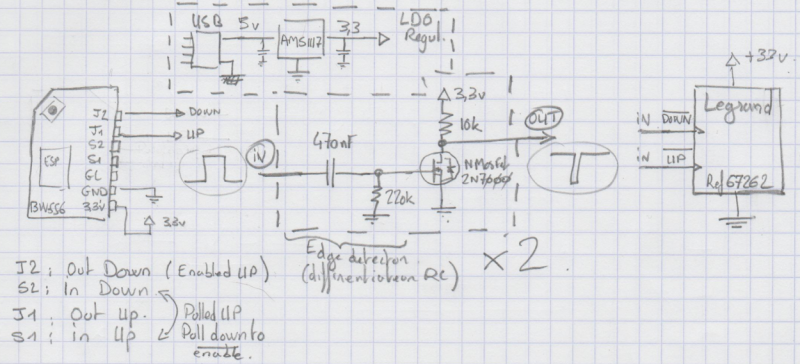 USB
5v
AMS1117
3,3
LDO
Regul.
J2
DOWN
J1
UP
S2
S1
GL
GND
3,3v
ESP
BW656
3,3v
IN
470nF
220k
3,3v
10k
OUT
NMosfet
2N7000
+33v
Legrand
IN DOWN
IN UP
Ref 67262
Edge detection
(differentiateur RC)
x2
J2: Out Down (Enabled UP)
S2: In Down
J1: Out Up.
S1: in Up
Pulled UP
Pull down to
enable.